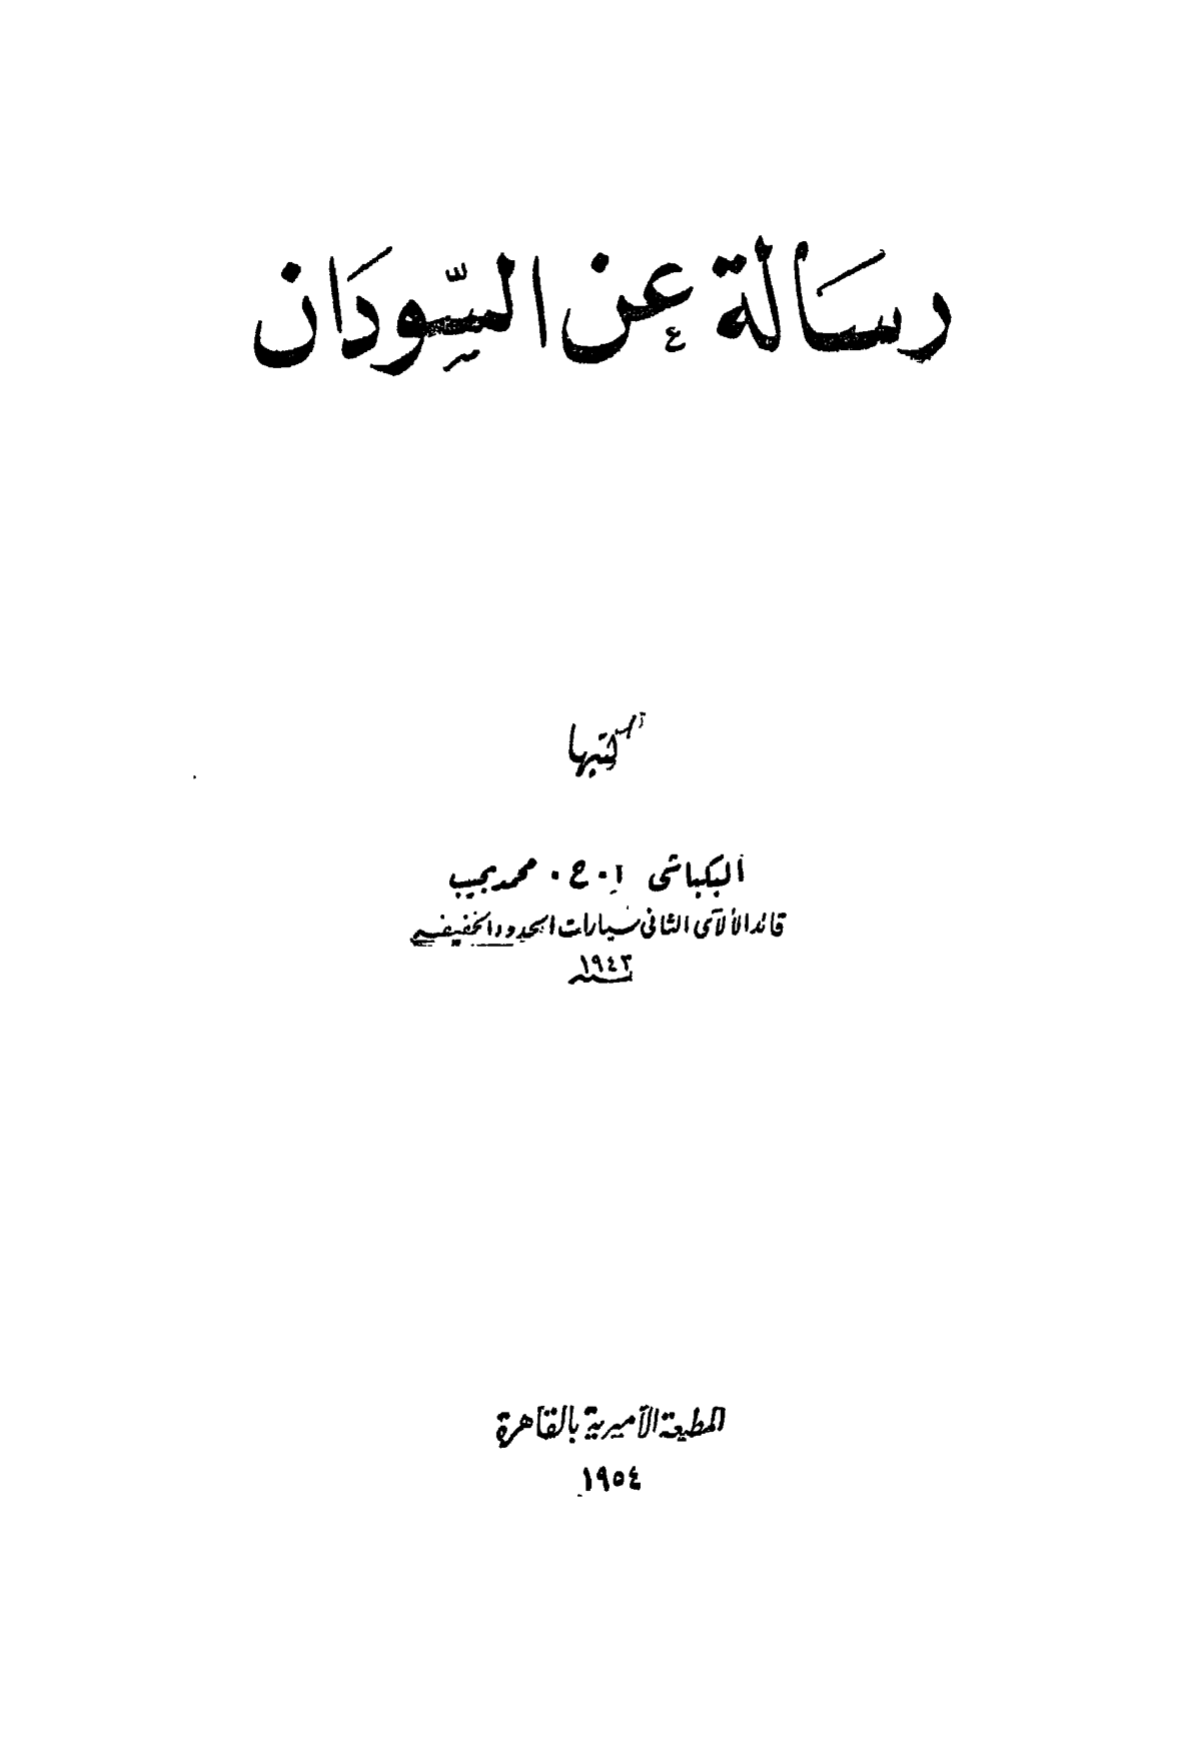 رسالة عن السودان
كتبها
البكباشى ا . ح . محمد نجيب
قائد الألاى الثانى سيارات الحدود الخفيفة
سنة ١٩٤٣
المطبعة الأميرية بالقاهرة
١٩٥٤